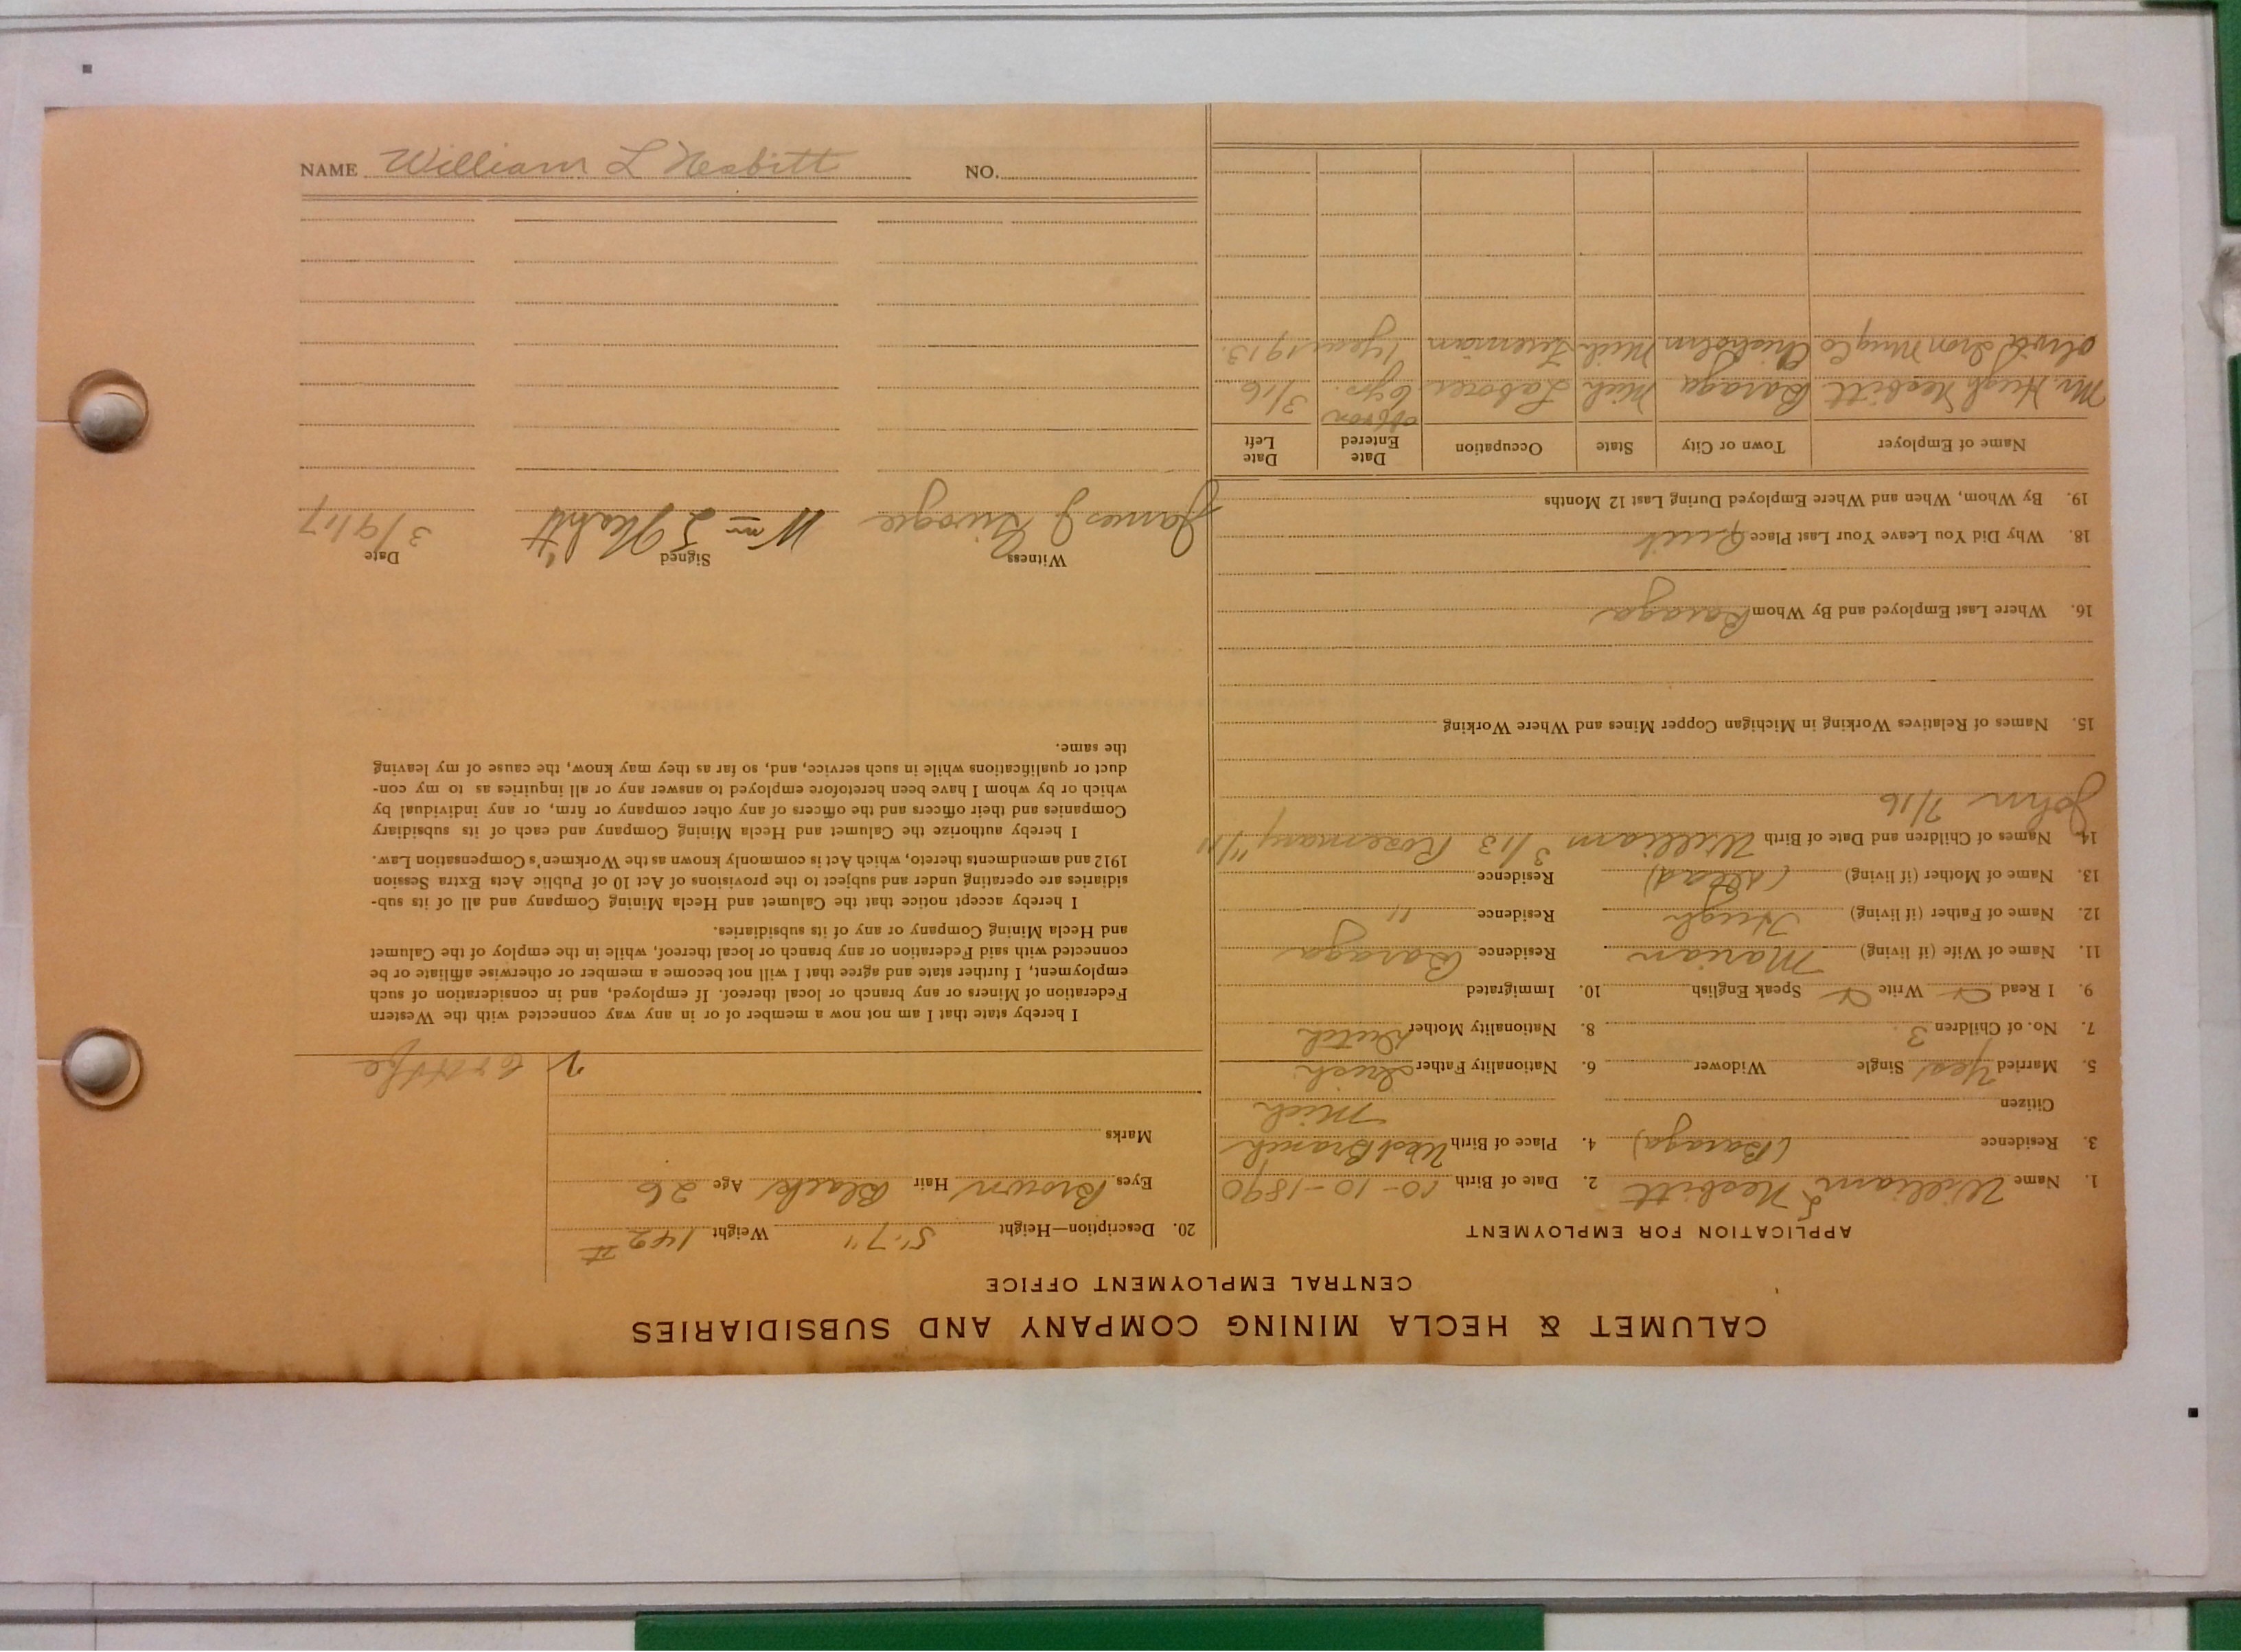 CALUMET & HECLA MINING COMPANY AND SUBSIDIARIES
CENTRAL EMPLOYMENT OFFICE
APPLICATION FOR EMPLOYMENT
1. Name William L Nesbitt 2. Date of Birth 10-10-1890
3. Residence (Baraga) 4. Place of Birth West Branch
Citizen Mich
5. Married Yes Single Widower 6. Nationality Father Irish
7. No. of Children 3 8. Nationality Mother Dutch
9. I Read Write Speak English 10. Immigrated
11. Name of Wife (if living) Marian Residence Baraga
12. Name of Father (if living) Hugh Residence "
13. Name of Mother (if living) (dead) Residence
14. Names of Children and Date of Birth William 3/13 Rosemary 11/11
John 7/16
15. Names of Relatives Working in Michigan Copper Mines and Where Working
16. Where Last Employed and By Whom Baraga
18. Why Did You Leave Your Last Place Quit
19. By Whom, When and Where Employed During Last 12 Months
Name of Employer Town or City State Occupation Date Entered Date Left
Mr. Hugh Nesbitt Baraga Mich Laborer off & on 6 yrs. 3/16
Oliver Iron Mng Co Chisholm Mich Fireman 1 year 1913.
20. Description—Height 5'-7" Weight 142 #
Eyes Brown Hair Black Age 26
Marks
I hereby state that I am not now a member of or in any way connected with the Western
Federation of Miners or any branch or local thereof. If employed, and in consideration of such
employment, I further state and agree that I will not become a member or otherwise affiliate or be
connected with said Federation or any branch or local thereof, while in the employ of the Calumet
and Hecla Mining Company or any of its subsidiaries.
I hereby accept notice that the Calumet and Hecla Mining Company and all of its sub-
sidiaries are operating under and subject to the provisions of Act 10 of Public Acts Extra Session
1912 and amendments thereto, which Act is commonly known as the Workmen's Compensation Law.
I hereby authorize the Calumet and Hecla Mining Company and each of its subsidiary
Companies and their officers and the officers of any other company or firm, or any individual by
which or by whom I have been heretofore employed to answer any or all inquiries as to my con-
duct or qualifications while in such service, and, so far as they may know, the cause of my leaving
the same.
Witness Signed Date
James J Wm L Nesbitt 3/9/17
NAME William L Nesbitt NO.